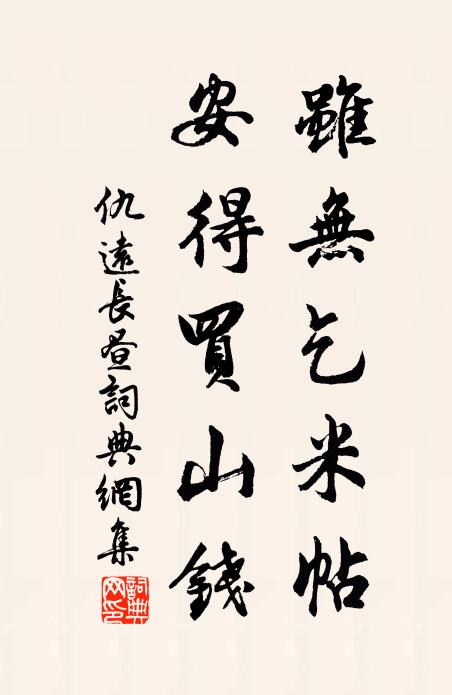 雖無乞米帖
安得買山錢
仇遠長昼詞典網集
詞典網印